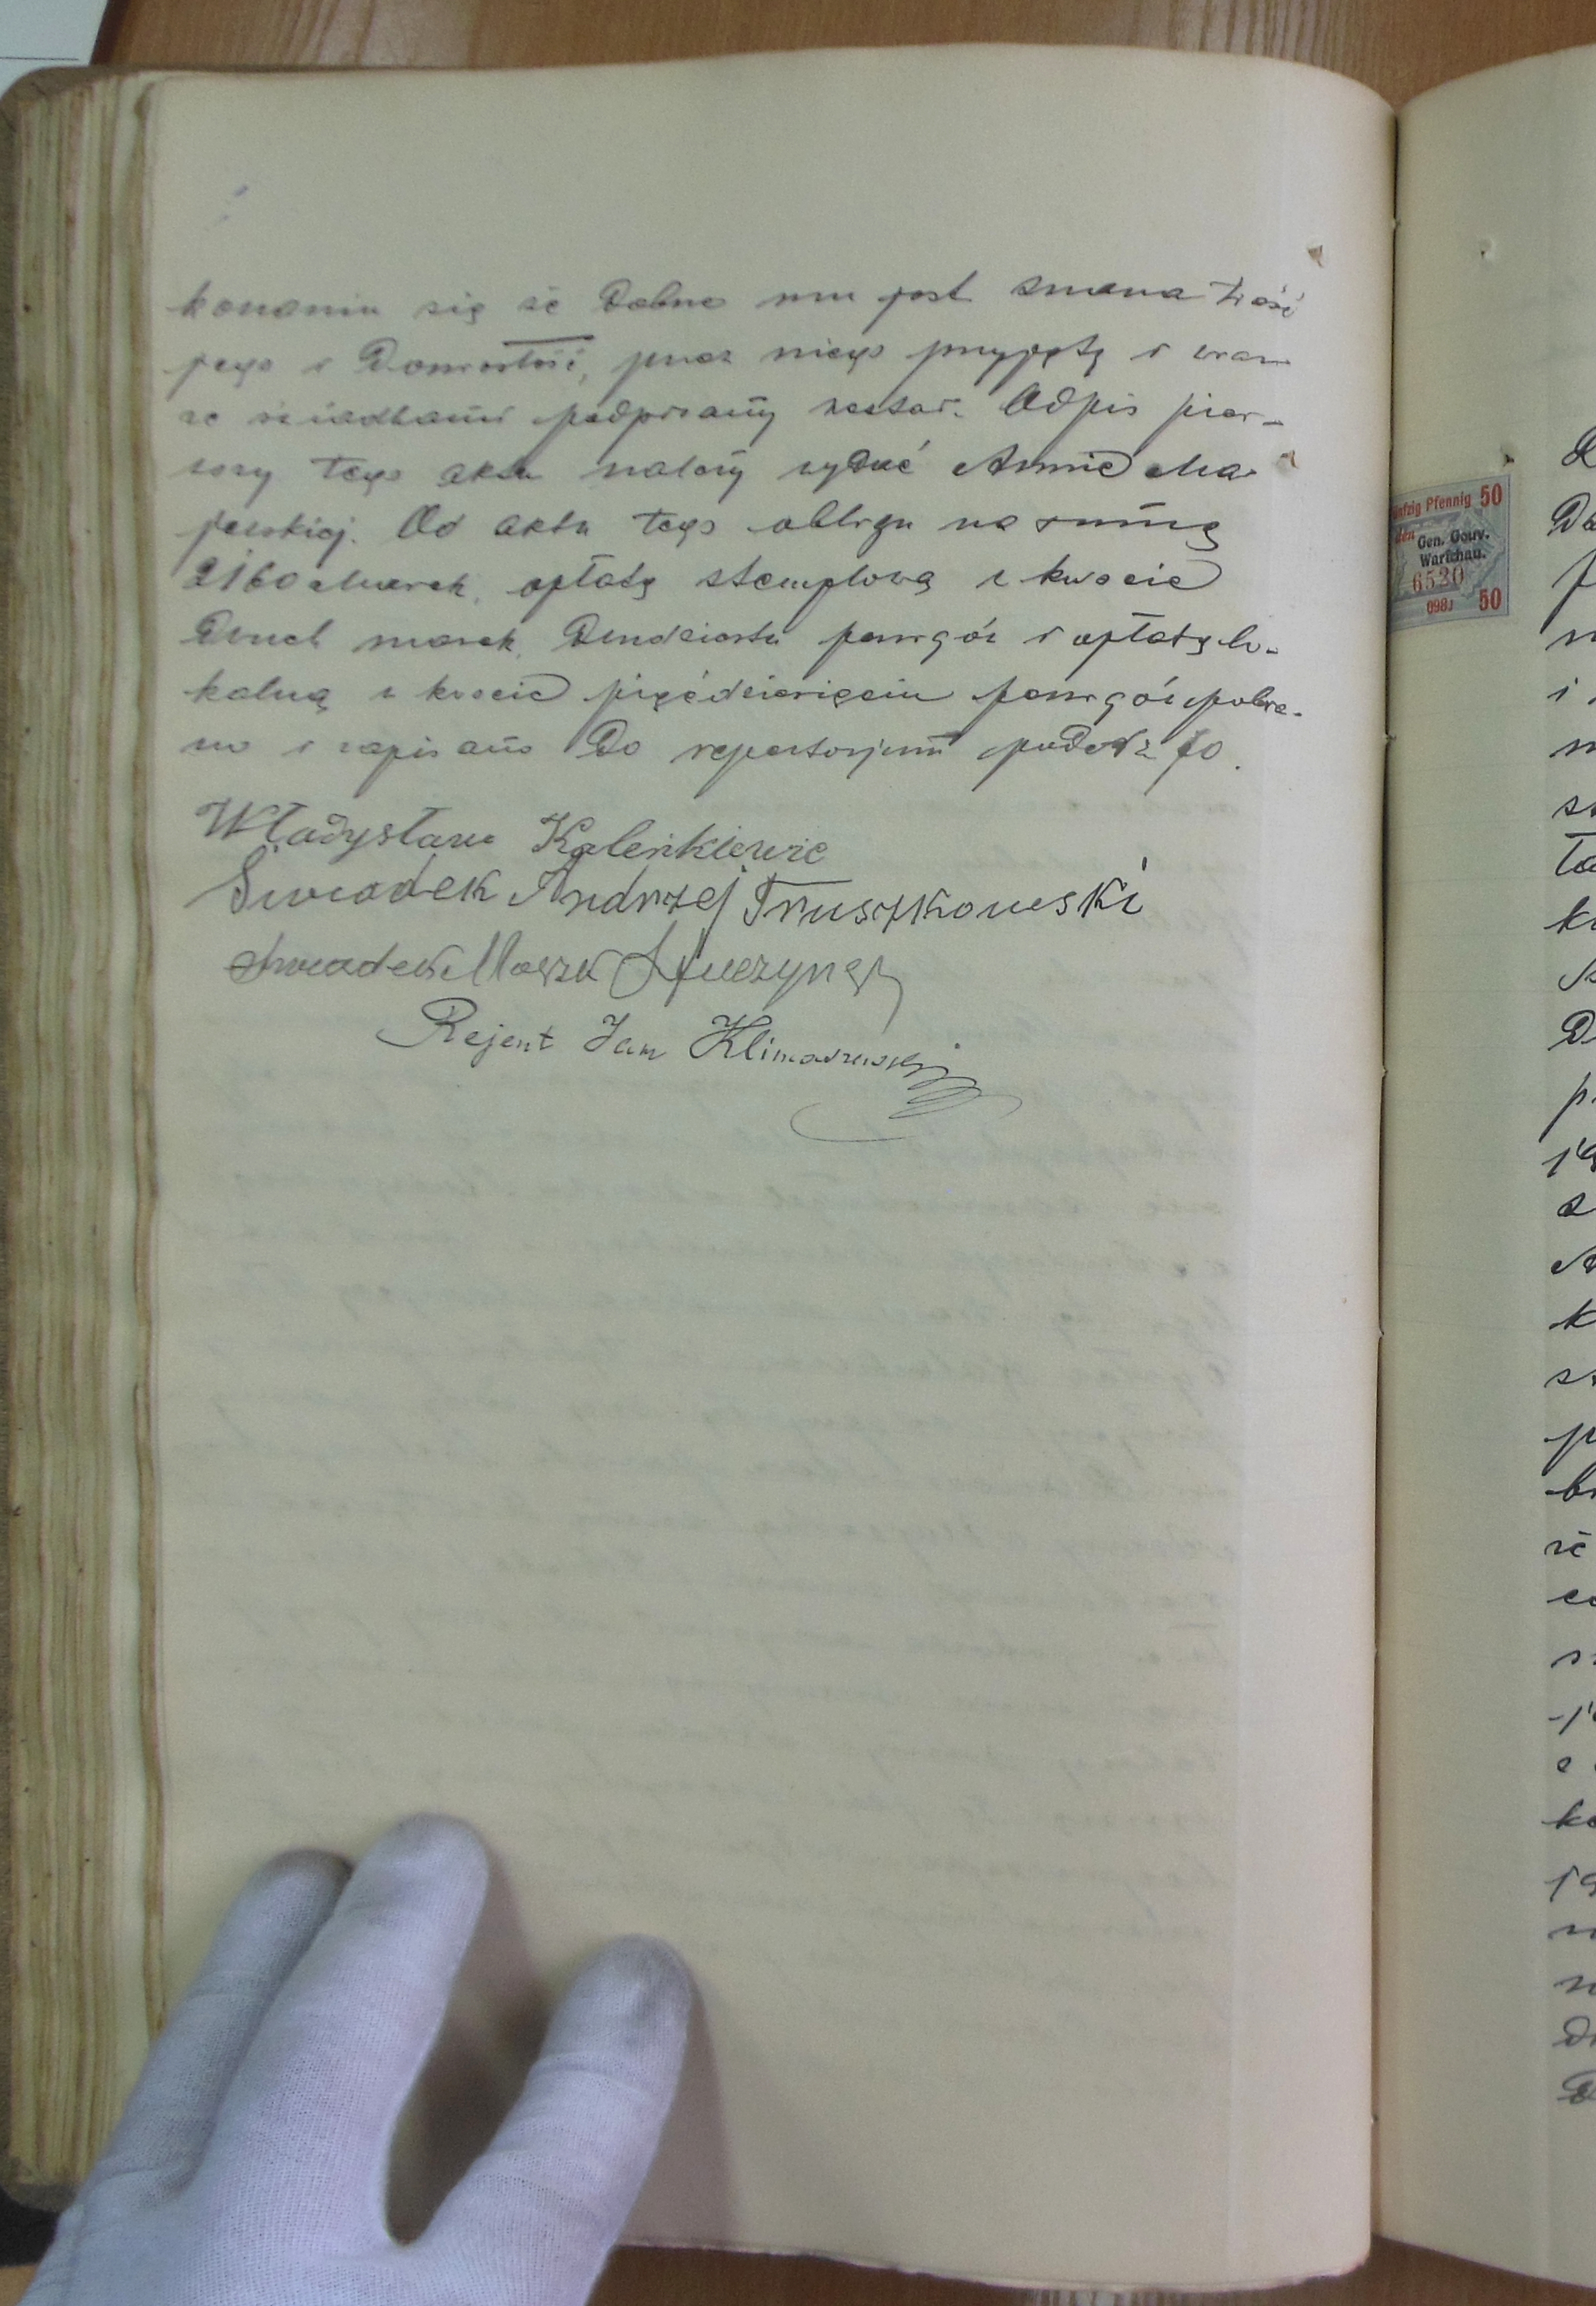 konaniu się że dobrze mu jest znana treść
jego i doniosłość, przez niego przyjęty i wraz
ze świadkami podpisany został. Odpis pier-
wszy tego aktu należy wydać Annie Ma-
jewskiej. Od aktu tego obligu na summę
2160 Marek, opłatę stemplową w kwocie
dwuch marek dwudziestu fenigów i opłatę lo-
kalną w kwocie pięćdziesięciu fenigów pobra-
no i zapisano do repertorjum pod №
Władysław Kalenkiewic
Swiadek Andrzej Truszkowski
Swiadek
Rejent Jan Klimaszewski
Pfennig 50
Gen. Gouv.
Warschau.
6520
50